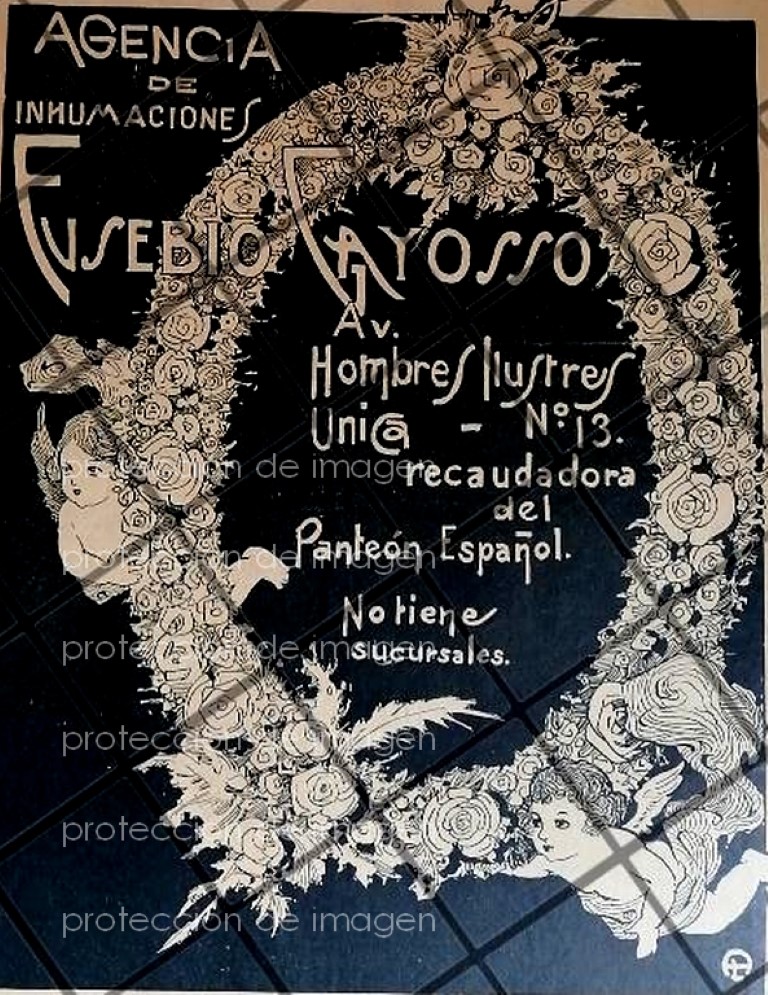 AGENCIA
DE
INHUMACIONES
EUSEBIO GAYOSSO
Av.
Hombres Ilustres
Unica - Nº 13.
recaudadora
del
Panteón Español.
No tiene
sucursales.
protección de imagen
protección de imagen
protección de imagen
protección de imagen
protección de imagen
protección de imagen